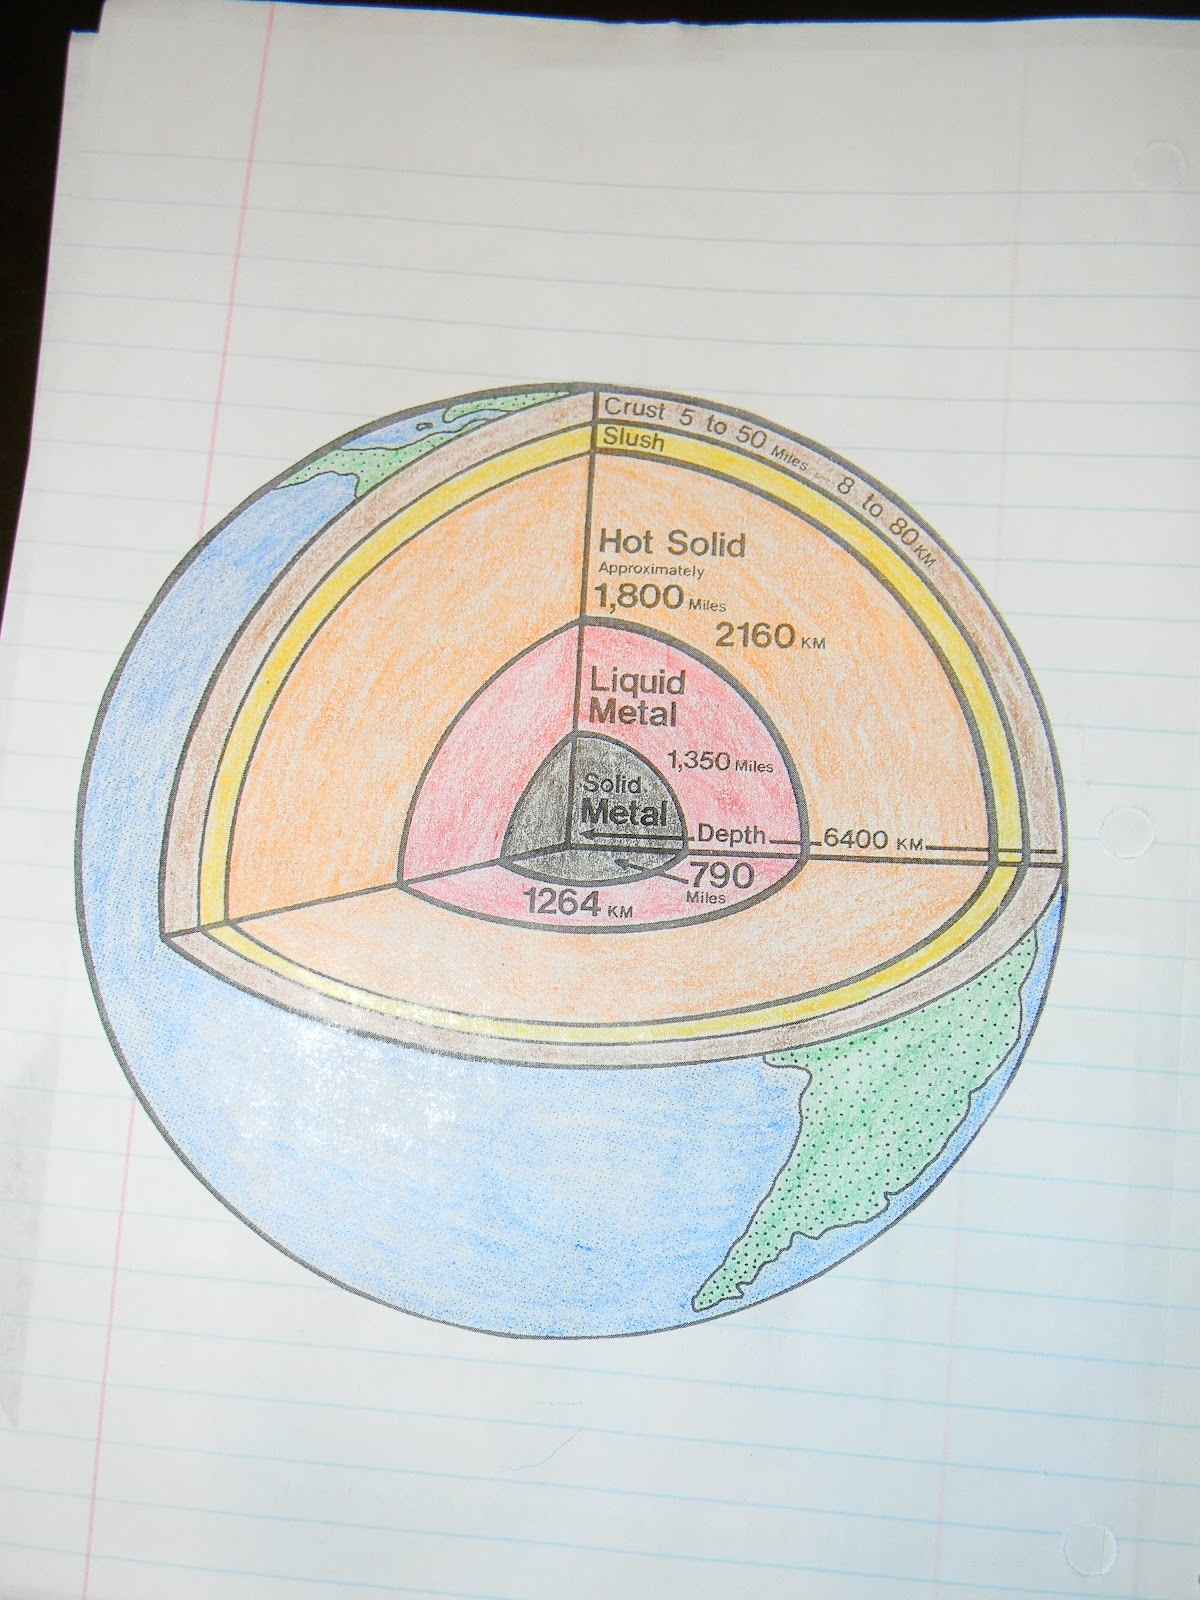 Crust 5 to 50 Miles 8 to 80 KM
Slush
Hot Solid
Approximately
1,800 Miles
2160 KM
Liquid
Metal
1,350 Miles
Solid
Metal
Depth 6400 KM
790
Miles
1264 KM